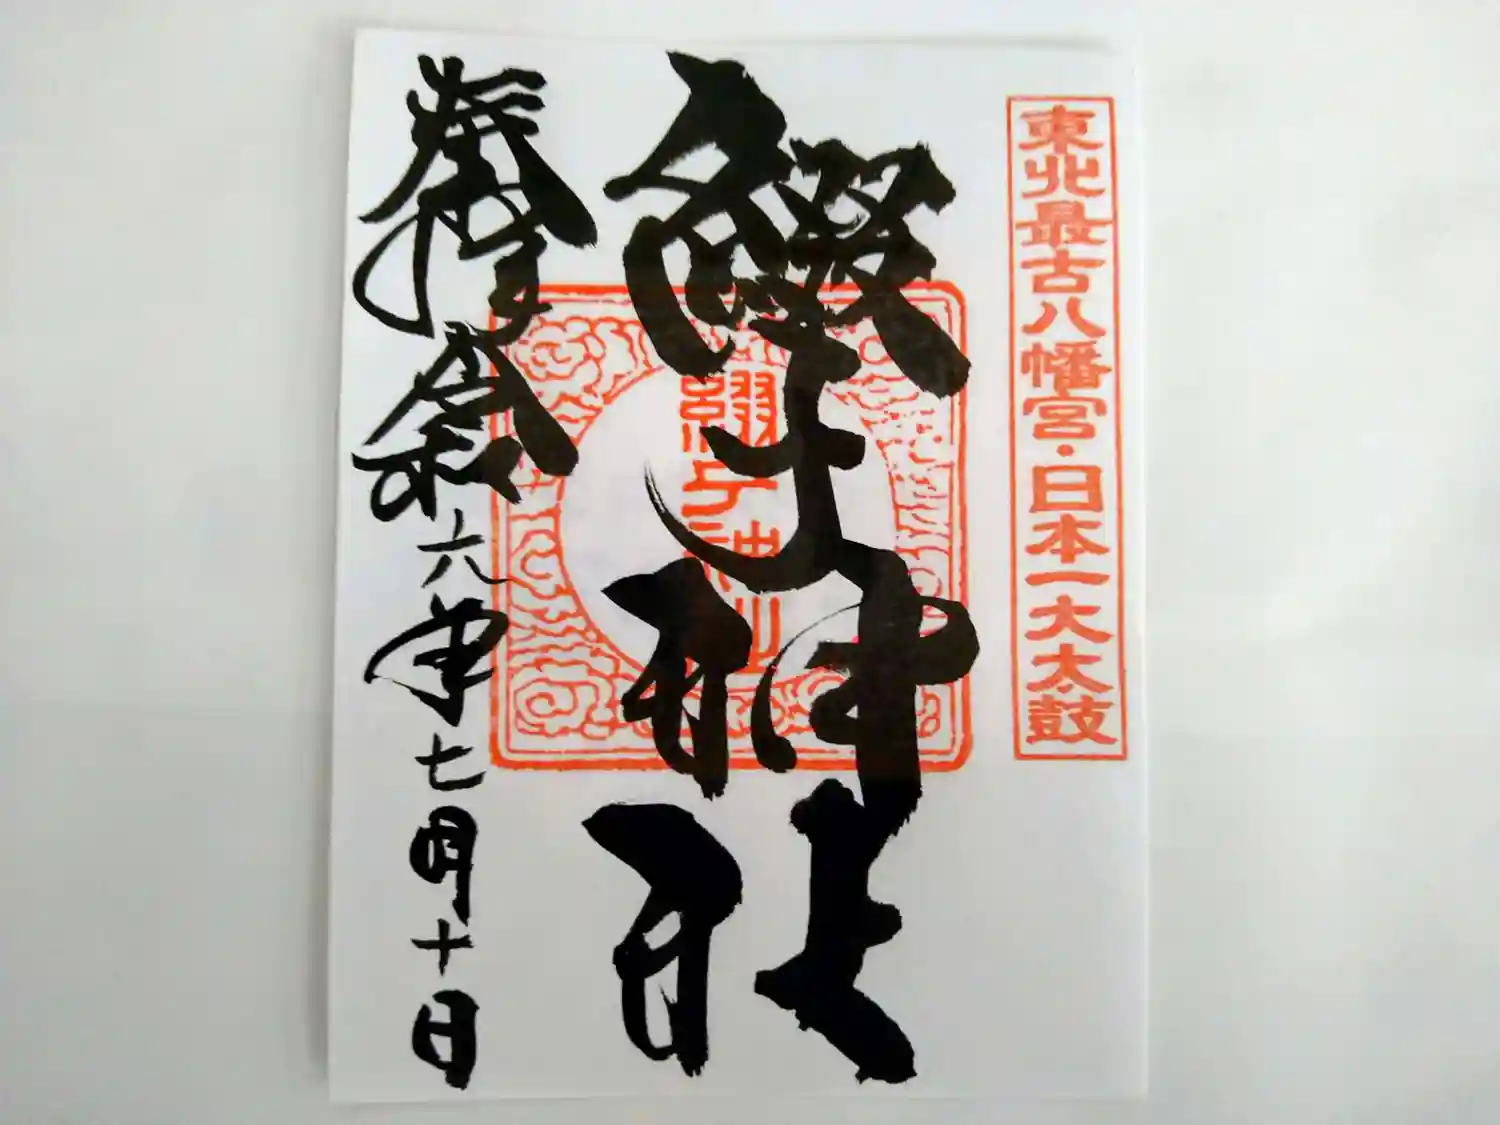 東北最古八幡宮・日本一大太鼓
綴子神社
綴子神社
奉拝 令和六年七月十日